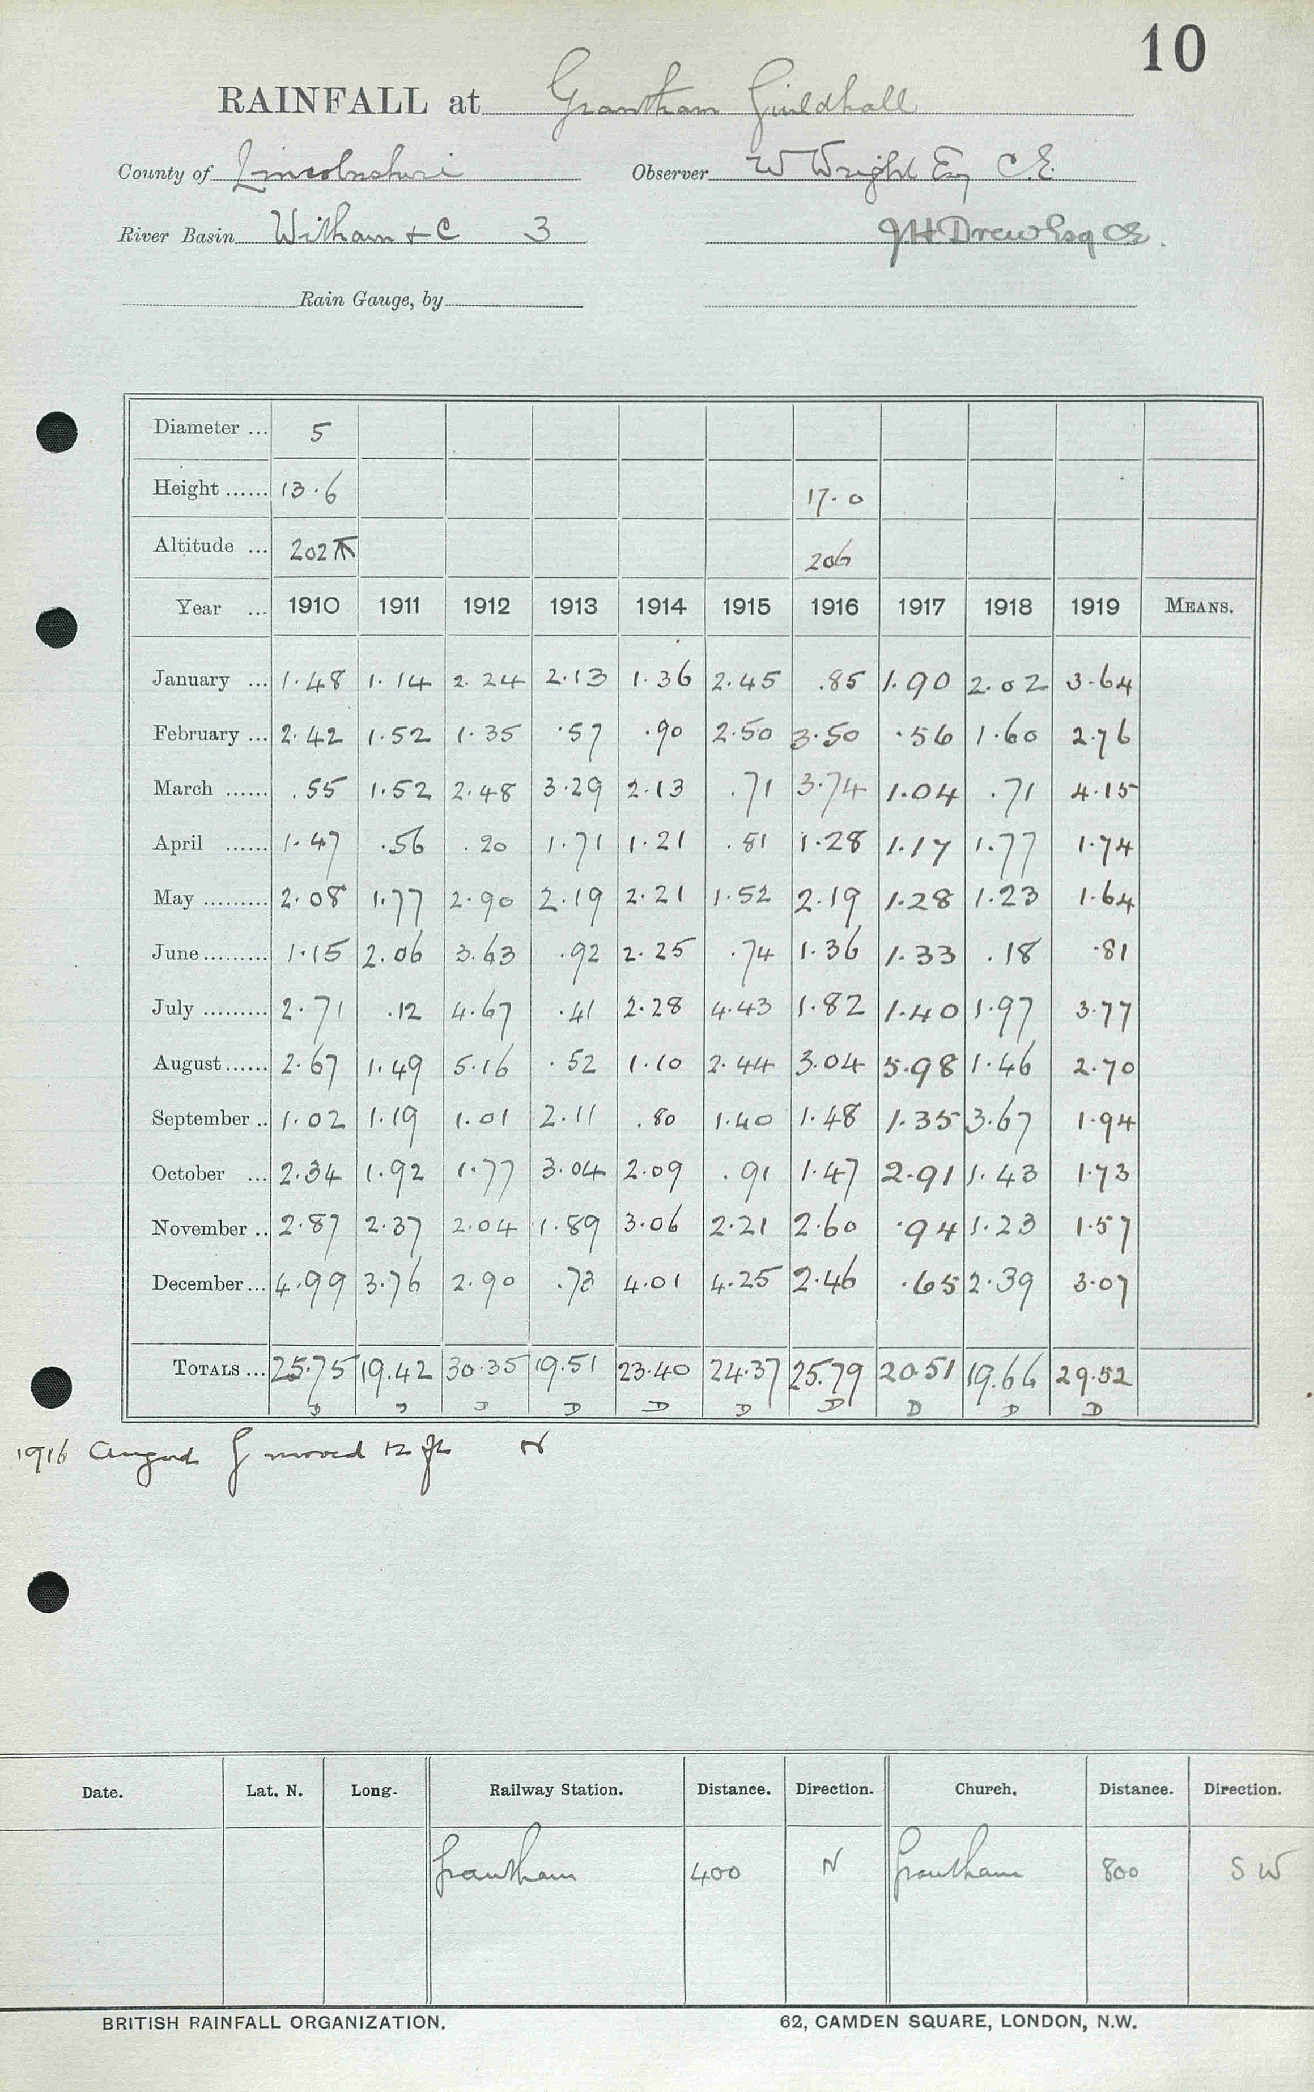 10
RAINFALL at Grantham Guildhall
County of Lincolnshire Observer W Wright Esq C.E.
River Basin Witham & C 3 J H Drew Esq CE.
Rain Gauge, by
Diameter ... 5
Height ...... 13.6 17.0
Altitude ... 202 206
Year ... 1910 1911 1912 1913 1914 1915 1916 1917 1918 1919 MEANS.
January ... 1.48 1.14 2.24 2.13 1.36 2.45 .85 1.90 2.02 3.64
February ... 2.42 1.52 1.35 .57 .90 2.50 3.50 .56 1.60 2.76
March ...... .55 1.52 2.48 3.29 2.13 .71 3.74 1.04 .71 4.15
April ...... 1.47 .56 .20 1.71 1.21 .81 1.28 1.17 1.77 1.74
May ......... 2.08 1.77 2.90 2.19 2.21 1.52 2.19 1.28 1.23 1.64
June ......... 1.15 2.06 3.63 .92 2.25 .74 1.36 1.33 .18 .81
July ......... 2.71 .12 4.67 .41 2.28 4.43 1.82 1.40 1.97 3.77
August ...... 2.67 1.49 5.16 .52 1.10 2.44 3.04 5.98 1.46 2.70
September .. 1.02 1.19 1.01 2.11 .80 1.40 1.48 1.35 3.67 1.94
October ... 2.34 1.92 1.77 3.04 2.09 .91 1.47 2.91 1.43 1.73
November .. 2.87 2.37 2.04 1.89 3.06 2.21 2.60 .94 1.23 1.57
December ... 4.99 3.76 2.90 .73 4.01 4.25 2.46 .65 2.39 3.07
TOTALS ... 25.75 19.42 30.35 19.51 23.40 24.37 25.79 20.51 19.66 29.52
D D D D D D D D D D
1916 August G moved 12 ft N
Date. Lat. N. Long. Railway Station. Distance. Direction. Church. Distance. Direction.
Grantham 400 N Grantham 800 S W
BRITISH RAINFALL ORGANIZATION. 62, CAMDEN SQUARE, LONDON, N.W.